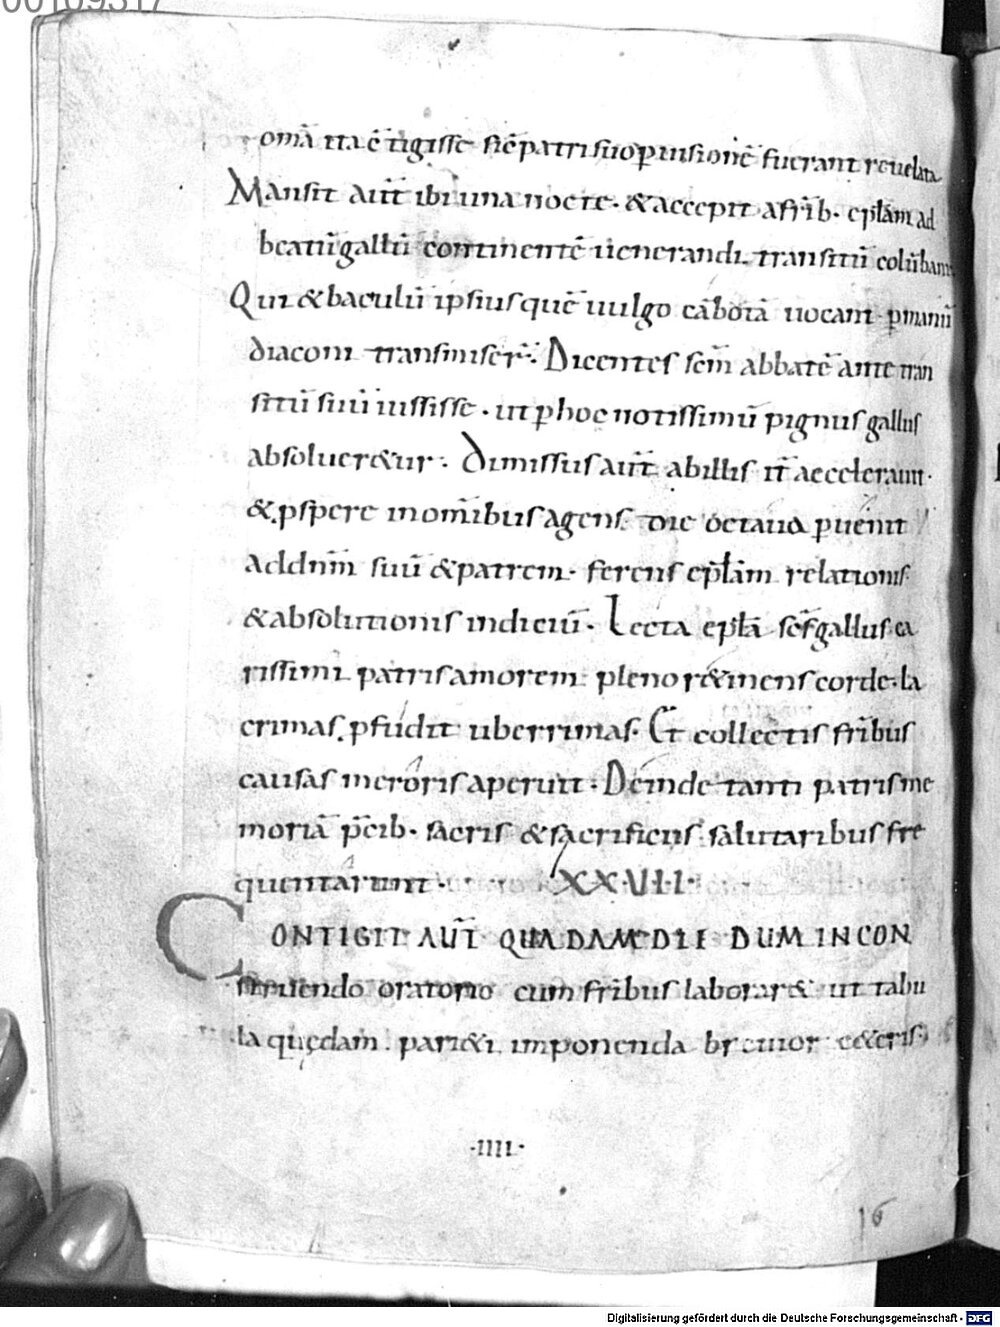 00109317
omā ita ē tigisse sic̄ patri suo p uisionē fuerant reuelata
Mansit aut̄ ibi una nocte · & accepit a fr̄ib · ep̄lam ad
beatū gallū continentē uenerandi transitū colūbani
Qui & baculū ipsius quē uulgo cābotā uocant p manū
diaconi transmiser̄ · Dicentes sc̄m abbatē ante tran
sitū suū iussisse · ut p hoc notissimū pignus gallus
absoluer&ur · Dimissus aut̄ ab illis it̄ accelerauit ·
& pspere in om̄ibus agens die octaua puenit
ad dn̄m suū & patrem · ferens ep̄lam relationis
& absolutionis indiciū · Lecta ep̄la sc̄s gallus ca
rissimi patris amorem pleno r&inens corde · la
crimas pfudit uberrimas · Et collectis fr̄ibus
causas meroris aperuit · Deinde tanti patris me
moriā p̄cib · sacris & sacrificiis salutaribus fre
quentarunt · XXVII ·
CONTIGIT AUT̄ QUADAM DIE DUM IN CON
struendo oratorio cum fr̄ibus laborar& ut tabu
la quędam pari&i imponenda breuior c&eris
· IIII ·
16
Digitalisierung gefördert durch die Deutsche Forschungsgemeinschaft - DFG